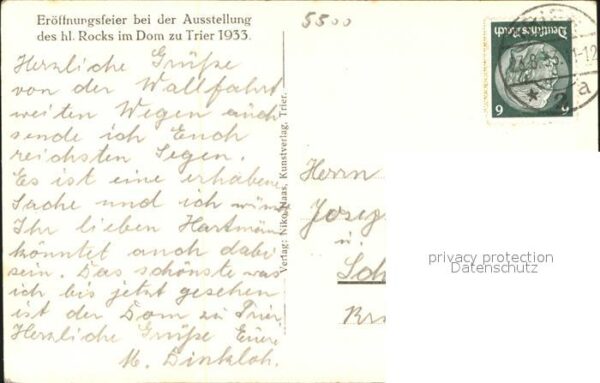 Eröffnungsfeier bei der Ausstellung
des hl. Rocks im Dom zu Trier 1933.
5500
Herzliche Grüße
von der Wallfahrt
weiten Wegen auch
sende ich Euch
reichsten Segen.
Es ist eine erhabene
Sache und ich
Ihr lieben
könntet auch dabei
sein. Das schönste was
ich bis jetzt gesehen
ist der Dom zu Trier
Herzliche Grüße Euere
M. Dinkloh.
Verlag: Niko Haas, Kunstverlag, Trier.
Deutsches Reich
6 6
Herrn
u.
privacy protection
Datenschutz